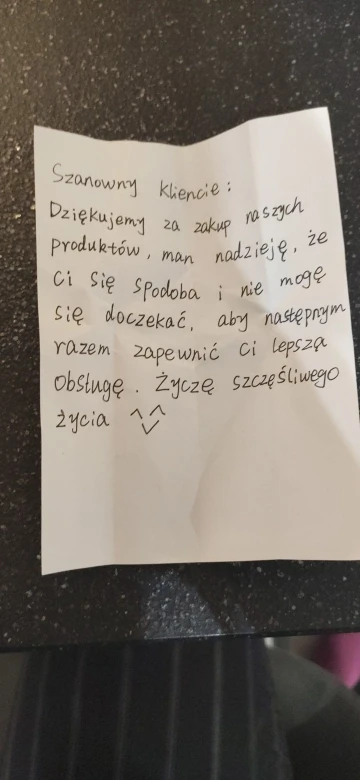 Szanowny Kliencie:
Dziękujemy za zakup naszych
produktów, man nadzieję, że
ci się spodoba i nie mogę
się doczekać, aby następnym
razem zapewnić ci lepsza
obsługę. Życzę szczęśliwego
życia ^v^